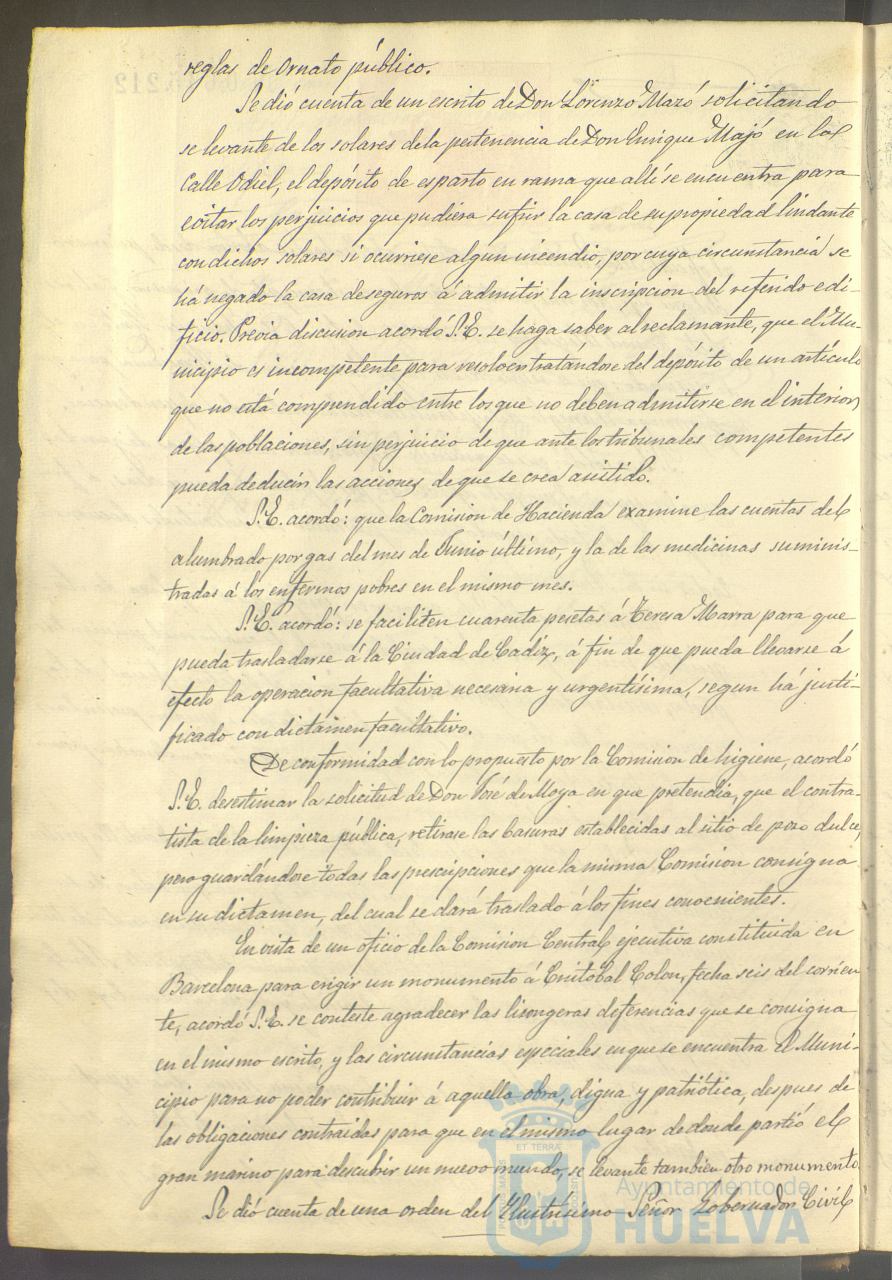 reglas de ornato público.
Se dió cuenta de un escrito de Don Lorenzo Mazó solicitando
se levante de los solares de la pertenencia de Don Enrique Majó en la
Calle Odiel, el depósito de esparto en rama que allí se encuentra para
evitar los perjuicios que pudiera sufrir la casa de su propiedad lindante
con dichos solares si ocurriese algun incendio, por cuya circunstancia se
há negado la casa de seguros á admitir la inscripcion del referido edi-
ficio. Previa discusion acordó S.E. se haga saber al reclamante, que el Mu-
nicipio es incompetente para resolver tratándose del depósito de un artículo
que no está comprendido entre los que no deben admitirse en el interior
de las poblaciones, sin perjuicio de que ante los tribunales competentes
pueda deducir las acciones de que se crea asistido.
S.E. acordó: que la Comision de Hacienda examine las cuentas del
alumbrado por gas del mes de Junio último, y la de las medicinas suminis-
tradas á los enfermos pobres en el mismo mes.
S.E. acordó: se faciliten cuarenta pesetas á Teresa Marra para que
pueda trasladarse á la Ciudad de Cadiz, á fin de que pueda llevarse á
efecto la operacion facultativa necesaria y urgentísima, segun há justi-
ficado con dictamen facultativo.
De conformidad con lo propuesto por la Comision de higiene, acordó
S.E. desestimar la solicitud de Don José de Moya en que pretendia, que el contra-
tista de la limpieza pública, retirase las basuras establecidas al sitio de pozo dulce,
pero guardandose todas las prescripciones que la misma Comision consigna
en su dictamen, del cual se dará traslado á los fines convenientes.
En vista de un oficio de la Comision Central ejecutiva constituida en
Barcelona para erigir un monumento á Cristóbal Colon, fecha seis del corrien
te, acordó S.E. se conteste agradecer las lisongeras deferencias que se consigna
en el mismo escrito, y las circunstancias especiales en que se encuentra el Muni-
cipio para no poder contribuir á aquella obra, digna y patriótica, despues de
las obligaciones contraidas para que en el mismo lugar de donde partió el
gran marino para descubrir un nuevo mundo, se levante tambien otro monumento.
Se dió cuenta de una orden del Ilustrísimo Señor Gobernador Civil
Ayuntamiento de
HUELVA